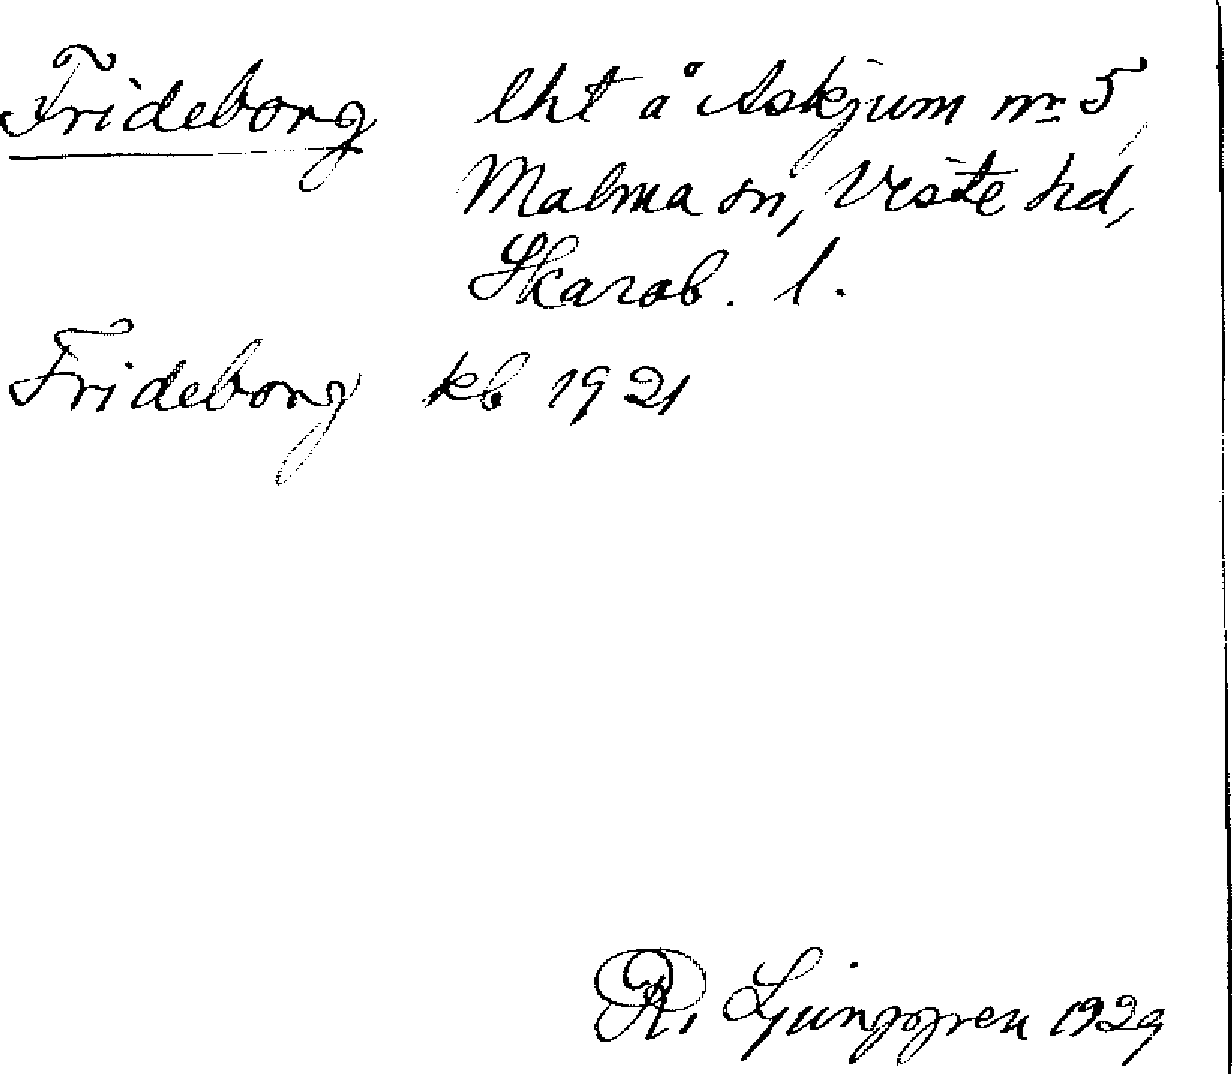 Frideborg lht å Askjum nr 5,
Malma sn, Viste hd,
Skarab. l.
Frideborg kb 1921
R. Ljunggren 1929